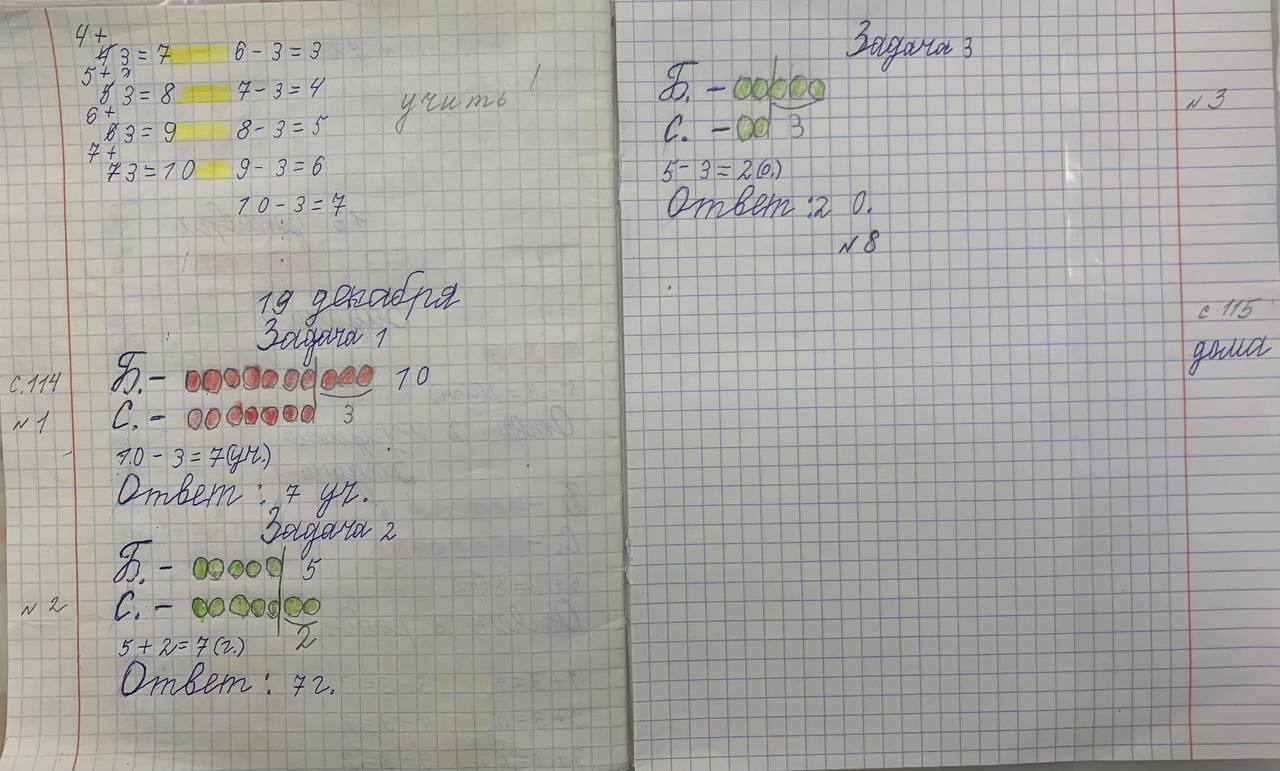 4+
4 3 = 7 6 - 3 = 3
5+
5 3 = 8 7 - 3 = 4
6+
6 3 = 9 8 - 3 = 5
7+
7 3 = 10 9 - 3 = 6
10 - 3 = 7
учить !
19 декабря
Задача 1
с. 114 Б. - 10
№ 1 С. - 3
10 - 3 = 7 (уч.)
Ответ : 7 уч.
Задача 2
Б. - 5
№ 2 С. -
2
5 + 2 = 7 (г.)
Ответ : 7 г.
Задача 3
Б. -
№ 3
С. - 3
5 - 3 = 2 (о.)
Ответ : 2 о.
№ 8
с. 115
дома